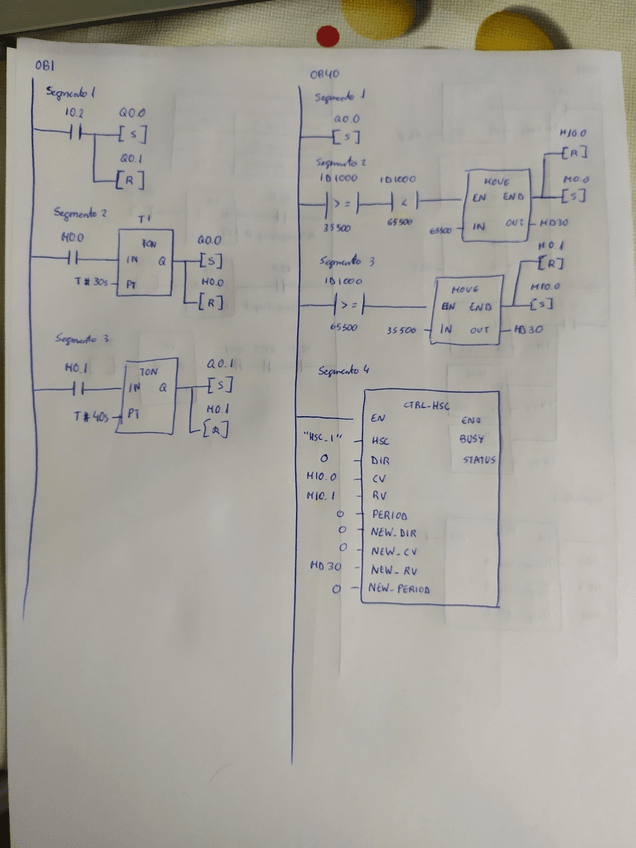 OB1
Segmento 1
I0.2
Q0.0
[S]
Q0.1
[R]
Segmento 2
M0.0
T1
TON
IN Q
T#30s PT
Q0.0
[S]
M0.0
[R]
Segmento 3
M0.1
TON
IN Q
T#40s PT
Q0.1
[S]
M0.1
[R]
OB40
Segmento 1
Q0.0
[S]
Segmento 2
ID1000
>=
35500
ID1000
<
65500
MOVE
EN END
65500 IN OUT MD30
M10.0
[R]
M0.0
[S]
Segmento 3
ID1000
>=
65500
MOVE
EN END
35500 IN OUT MD30
M0.1
[R]
M10.0
[S]
Segmento 4
CTRL-HSC
EN ENO
"HSC_1" HSC BUSY
0 DIR STATUS
M10.0 CV
M10.1 RV
0 PERIOD
0 NEW_DIR
0 NEW_CV
MD30 NEW_RV
0 NEW_PERIOD